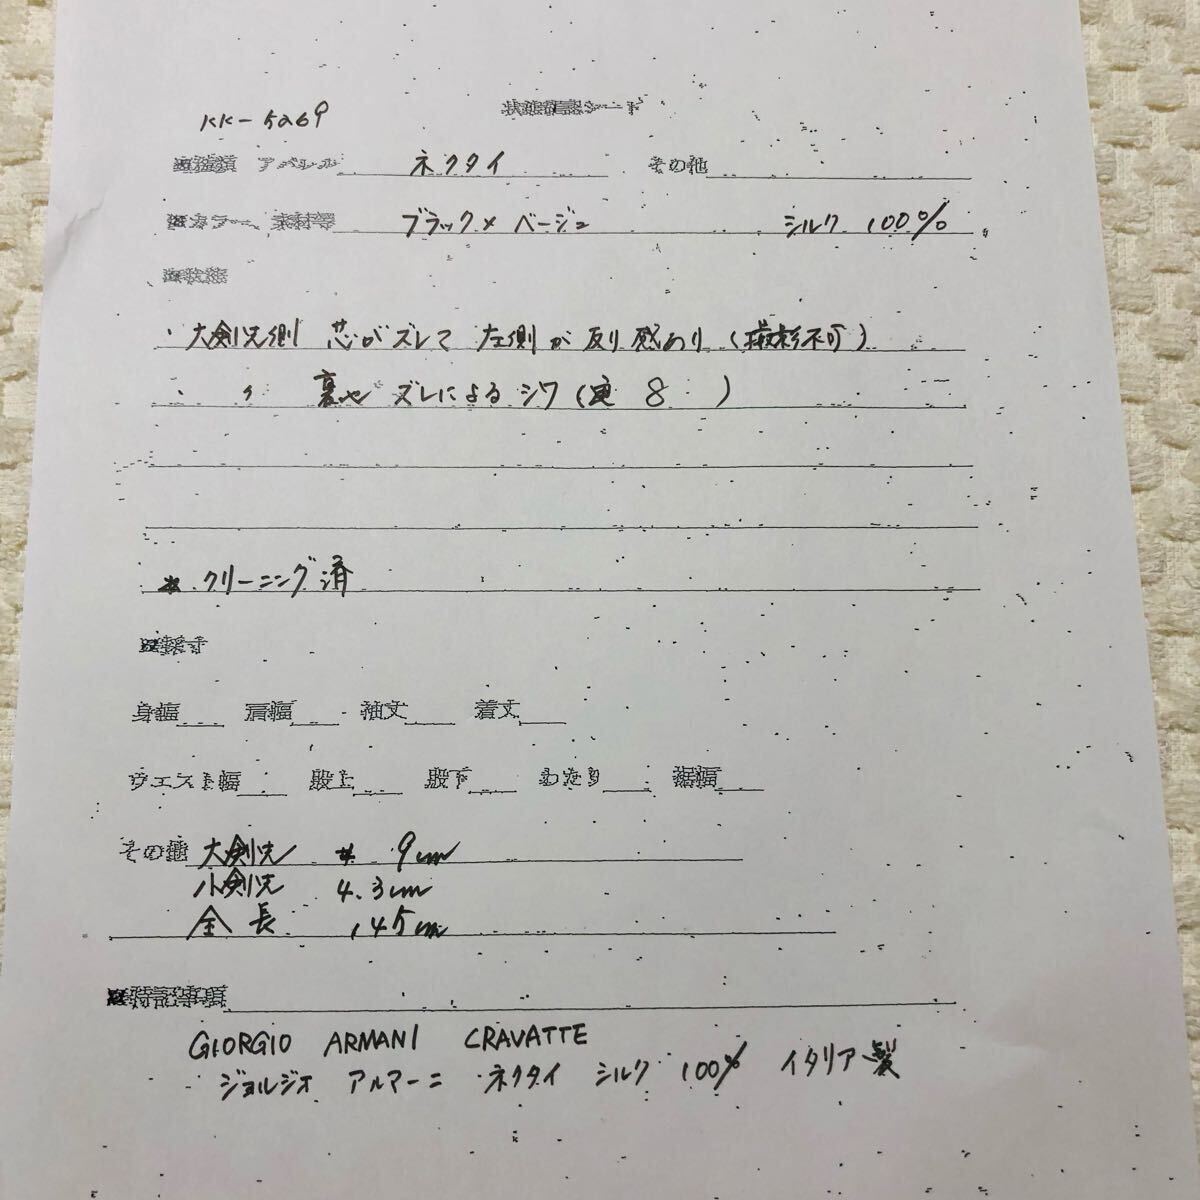 KK-5269
状態確認シート
■種類 アパレル ネクタイ その他
■カラー、素材等 ブラック×ベージュ シルク 100%
■状態
・大剣先側 芯がズレて 左側が反り感あり(撮影不可)
・ 〃 裏地ズレによるシワ( 8 )
* クリーニング済
■採寸
身幅 肩幅 袖丈 着丈
ウエスト幅 股上 股下 わたり 裾幅
その他 大剣先 9cm
小剣先 4.3cm
全長 145cm
■特記事項
GIORGIO ARMANI CRAVATTE
ジョルジオ アルマーニ ネクタイ シルク 100% イタリア製